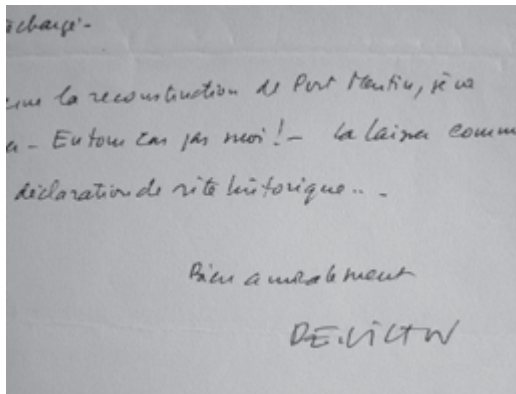 échargé -
la reconstruction de Port Mentin, je
- En tous cas pas moi ! - La laisser comm
déclaration de site historique .. -
Bien amicalement